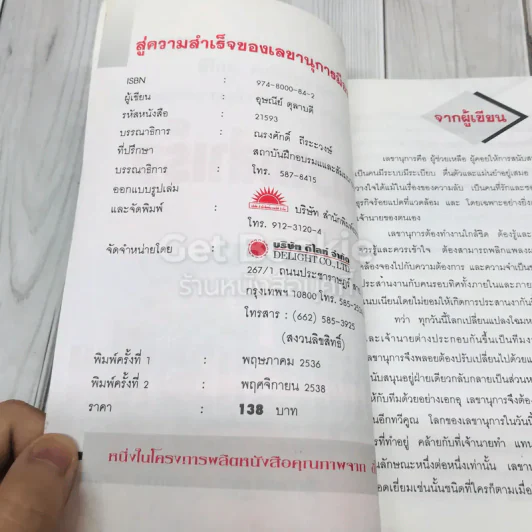 สู่ความสำเร็จของเลขานุการมือ
ISBN : 974-8000-84-2
ผู้เขียน : อุษณีย์ ตุลาบดี
รหัสหนังสือ : 21593
บรรณาธิการ : ณรงศักดิ์ ถีระะวงษ์
ที่ปรึกษา : สถาบันฝึกอบรมและสัมม
บรรณาธิการ : โทร. 587-8415
ออกแบบรูปเล่ม
และจัดพิมพ์ : บริษัท สำนักพิมพ์
โทร. 912-3120-4
จัดจำหน่ายโดย : บริษัท ดีไลท์ จำกัด
DELIGHT CO.,LTD.
267/1 ถนนประชาราษฎร์
กรุงเทพฯ 10800 โทร. 585-2
โทรสาร : (662) 585-3925
(สงวนลิขสิทธิ์)
พิมพ์ครั้งที่ 1 : พฤษภาคม 2536
พิมพ์ครั้งที่ 2 : พฤศจิกายน 2538
ราคา : 138 บาท
หนึ่งในโครงการผลิตหนังสือคุณภาพจาก
Get Bookie
ร้านหนังสือแคท
จากผู้เขียน
เลขานุการคือ ผู้ช่วยเหลือ ผู้คอยให้การสนับส
เป็นคนมีระบบมีระเบียบ ตื่นตัวและแม่นยำอยู่เสมอ
วางใจได้แม้ในเรื่องของความลับ เป็นที่รักและช
ธุรกิจร้อยแปดที่แวดล้อม และ โดยเฉพาะอย่างยิ่ง
เจ้านายของตนเอง
เลขานุการต้องทำงานใกล้ชิด ต้องรู้และ
ควรรู้และควรเข้าใจ ต้องสามารถพลิกแพลง
คล้องจองไปกับความต้องการ และความจำเป็น
ประสานงานกับคนรอบทิศทั้งภายในและภาย
นเนียนโดยไม่ยอมให้เกิดการประสานงากัน
ทว่า ทุกวันนี้โลกเปลี่ยนแปลงไปม
และเจ้านายต่างประกอบกันขึ้นเป็นทีมง
เลขานุการจึงพลอยต้องปรับเปลี่ยนไปด้วย
นับสนุนอยู่ฝ่ายเดียวกลับกลายเป็นส่วน
ให้กับทีมด้วยอย่างเอกอุ เลขานุการจึงต้อง
นอีกทวีคูณ โลกของเลขานุการในวันนี้
ที่ทำอยู่ คล้ายกับที่เจ้านายทำ แทน
ลักษณะหนึ่งต่อหนึ่งเท่านั้น เลขานุ
อดเยี่ยมเช่นนั้นชนิดที่ใครก็ตามเมื่อ